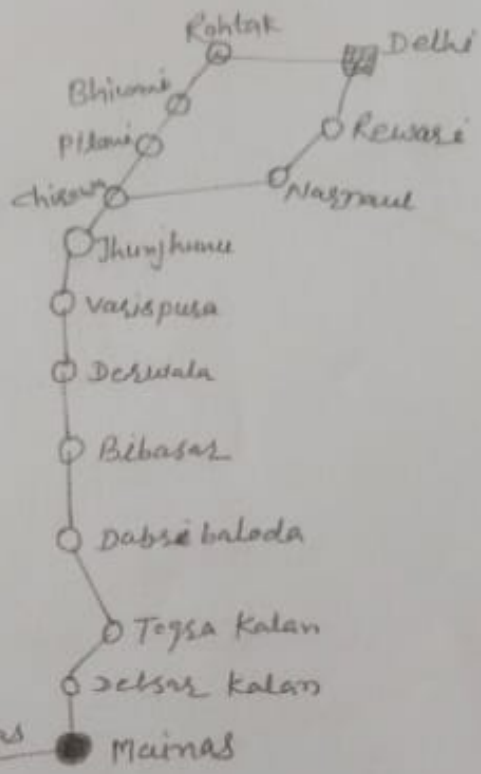 Rohtak
Delhi
Bhiwani
Pilani
Rewari
Chirawa
Narnaul
Jhunjhunu
Varispura
Derwala
Bibasar
Dabri baloda
Togra Kalan
Jetsar Kalan
as
Mainas